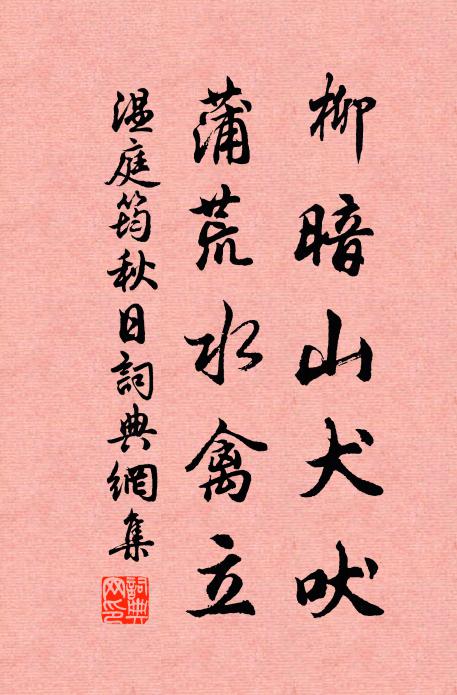 柳暗山犬吠
蒲荒水禽立
温庭筠秋日詞典網集
詞典網印